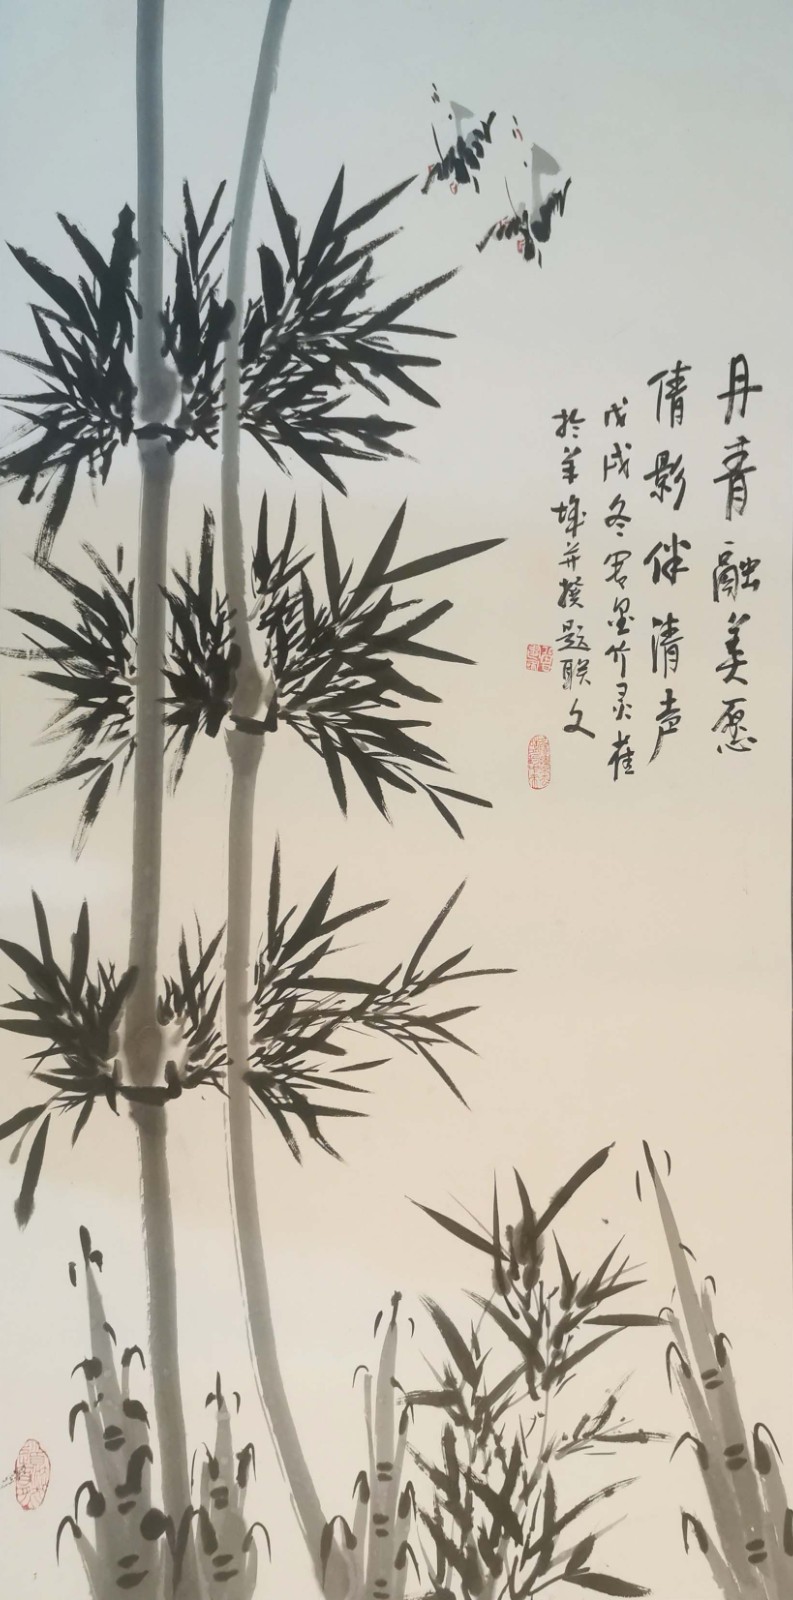 丹青融美愿
倩影伴清声
戊戌冬写墨竹灵雀
於羊城并撰题联文